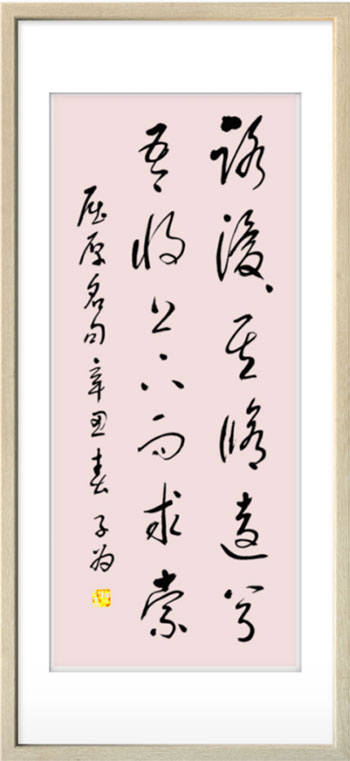 路漫々其修遠兮
吾将上下而求索
屈原名句辛丑春子为